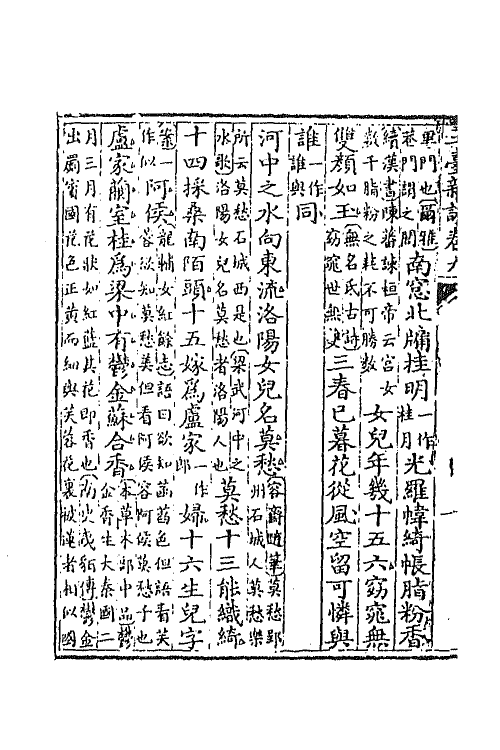 玉臺新詠卷九
里門也爾雅
巷門謂之閎
南窓北牖桂明
一作
桂月
光羅幃綺帳脂粉香
續漢書陳蕃諫桓帝云宮女
數千脂粉之耗不可勝數
女兒年幾十五六窈窕無
雙顏如玉
無名氏古詩
窈窕世無雙
三春已暮花從風空留可憐與
誰
一作
誰與
同
河中之水向東流洛陽女兒名莫愁
容齋隨筆莫愁郢
州石城人莫愁樂
所云莫愁石城西是也梁武河中之
水歌洛陽女兒名莫愁者洛陽人也
莫愁十三能織綺
十四採桑南陌頭十五嫁爲盧家
一作
郎
婦十六生兒字
一作
作似
阿侯
龍輔女紅餘志語曰欲知菡萏色但語看芙
蓉欲知莫愁美但看阿侯容阿侯莫愁子也
盧家蘭室桂爲梁中有鬱金蘇合香
本草木部中品鬱
金香生大秦國二
月三月有花狀如紅藍其花即香也南史
鬱金
出罽賓國花色正黃而細與芙蓉花裏被蓮者相似國